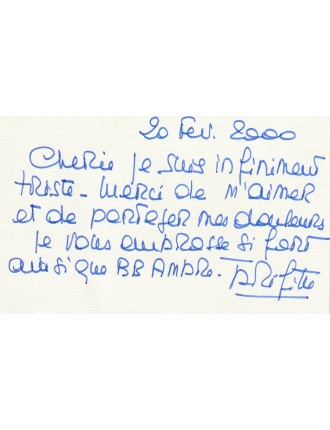 20 Fév. 2000
Cherie je suis infiniment
triste - Merci de m'aimer
et de partager mes douleurs
je vous embrasse si fort
ainsi que BB AMDRE.